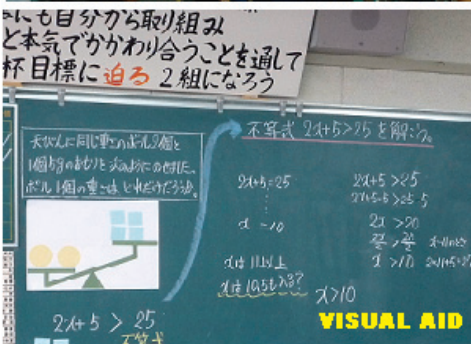 にも自分から取り組み
と本気でかかわり合うことを通して
杯目標に迫る 2組になろう
天びんに同じ重さのボール2個と
1個5gのおもりを次のようにのせました。
ボール1個の重さは どれだけだろうか。
2x+5 > 25
不等式
不等式 2x+5>25 を解こう。
2x+5=25
x =10
xは11以上
xは10.5も入る?
2x+5>25
2x+5-5>25-5
2x >20
x >10
x>10
VISUAL AID